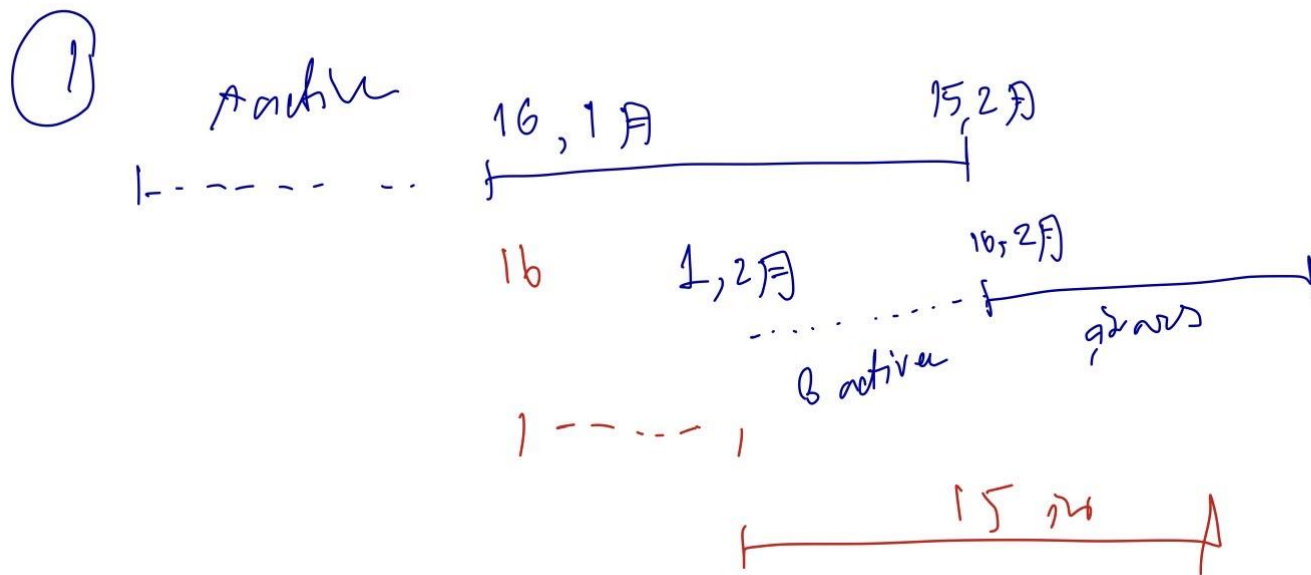 1
A active
16, 1月
15, 2月
16
1, 2月
16, 2月
B active
15